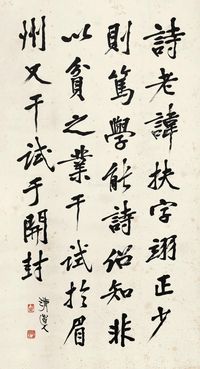 詩老諱扶字翊正少
則篤學能詩紹知非
以貧之業干試於眉
州又干試于開封